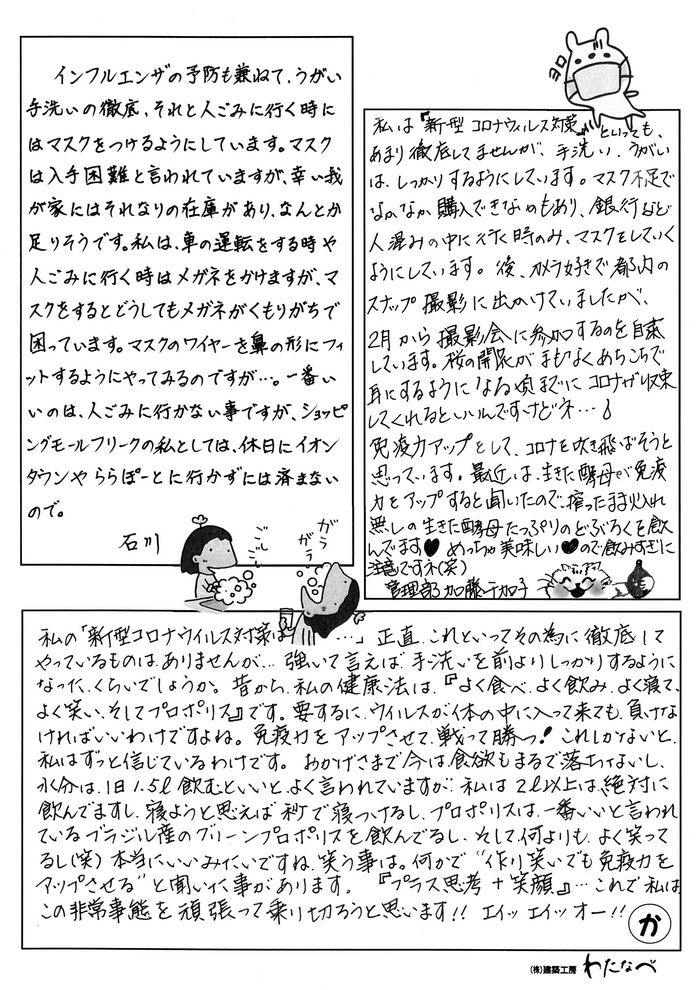 インフルエンザの予防も兼ねて、うがい
手洗いの徹底、それと人ごみに行く時に
はマスクをつけるようにしています。マスク
は入手困難と言われていますが、幸い我
が家にはそれなりの在庫があり、なんとか
足りそうです。私は、車の運転をする時や
人ごみに行く時はメガネをかけますが、マ
スクをするとどうしてもメガネがくもりがちで
困っています。マスクのワイヤーを鼻の形にフィ
ットするようにやってみるのですが…。一番い
いのは、人ごみに行かない事ですが、ショッピ
ングモールフリークの私としては、休日にイオン
タウンやららぽーとに行かずには済まない
ので。
石川
ヨロ
私は『新型コロナウィルス対策』といっても、
あまり徹底してませんが、手洗い、うがい
は、しっかりするようにしています。マスク不足で
なかなか購入できないのもあり、銀行など
人混みの中に行く時のみ、マスクをしていく
ようにしています。後、カメラ好きで都内の
スナップ撮影に出かけていましたが、
2月から撮影会に参加するのを自粛
しています。桜の開花がまもなくあちこちで
耳にするようになる頃までにコロナが収束
してくれるといいんですけどネ…♪
免疫力アップとして、コロナを吹き飛ばそうと
思っています。最近は、生きた酵母が免疫
力をアップすると聞いたので、搾ったまま火入れ
無しの生きた酵母たっぷりのどぶろくを飲
んでます♥ めっちゃ美味しい♥ので飲みすぎに
注意ですネ(笑)
管理部 加藤千加子
ガラガラ
ごしごし
私の「新型コロナウイルス対策は、……」正直、これといってその為に徹底して
やっているものは、ありませんが… 強いて言えば、手洗いを前よりしっかりするように
なった、くらいでしょうか。昔から、私の健康法は、『よく食べ、よく飲み、よく寝て、
よく笑い、そしてプロポリス』です。要するに、ウイルスが体の中に入って来ても、負けな
ければいいわけですよね。免疫力をアップさせて、戦って勝つ! これしかないと、
私はずっと信じているわけです。おかげさまで今は、食欲もまるで落ちてないし、
水分は、1日1.5ℓ飲むといいと、よく言われていますが、私は2ℓ以上は、絶対に
飲んでますし、寝ようと思えば秒で寝つけるし、プロポリスは、一番いいと言われ
ているブラジル産のグリーンプロポリスを飲んでるし、そして何よりも、よく笑って
るし(笑) 本当にいいみたいですね、笑う事は。何かで“作り笑いでも免疫力を
アップさせる”と聞いた事があります。『プラス思考+笑顔』…これで私は
この非常事態を頑張って乗り切ろうと思います!! エイッエイッオー!!
か
(株)建築工房 わたなべ